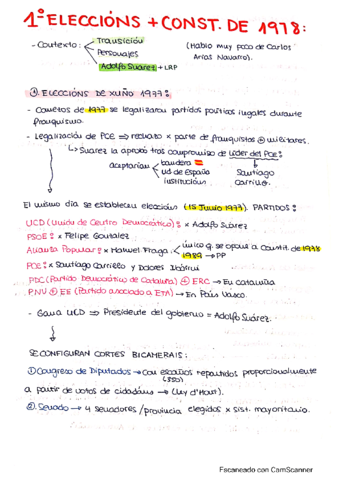 1º ELECCIÓNS + CONST. DE 1978:
- Contexto: Transición
Personajes
Adolfo Suárez + LRP
(Hablo muy poco de Carlos Arias Navarro).
① ELECCIÓNS DE XUÑO 1977:
- Comezos de 1977 se legalizarou partidos políticos ilegales durante
franquismo.
- Legalización de PCE ⇒ rechazo x parte de franquistas ⊕ militares.
↳ Suarez la aprobó tras compromiso de líder del PCE:
aceptarían bandera
ud de españa
institucións
Santiago
Carrillo.
El mismo día se estableceu eleccións (15 Junio 1977). PARTIDOS:
UCD (Unión de Centro Democrático): x Adolfo Suárez
PSOE: x Felipe González
Alianza Popular: x Manuel Fraga: único q se opone a Constit. de 1978
1989 → PP
PCE: x Santiago Carrillo y Dolores Ibárruri
PDC (Partido Democrático de Cataluña) ⊕ ERC → En Cataluña
PNV ⊕ EE (Partido asociado a ETA) → En País Vasco.
- Gana UCD ⇒ Presidente del gobierno = Adolfo Suárez.
SE CONFIGURAN CORTES BICAMERAIS:
① Congreso de Diputados → Con escaños repartidos proporcionalmente
(350)
a partir de votos de cidadáns → (Ley d'Hont).
② Senado → 4 senadores/provincia elegidos x sist. mayoritario.
Escaneado con CamScanner